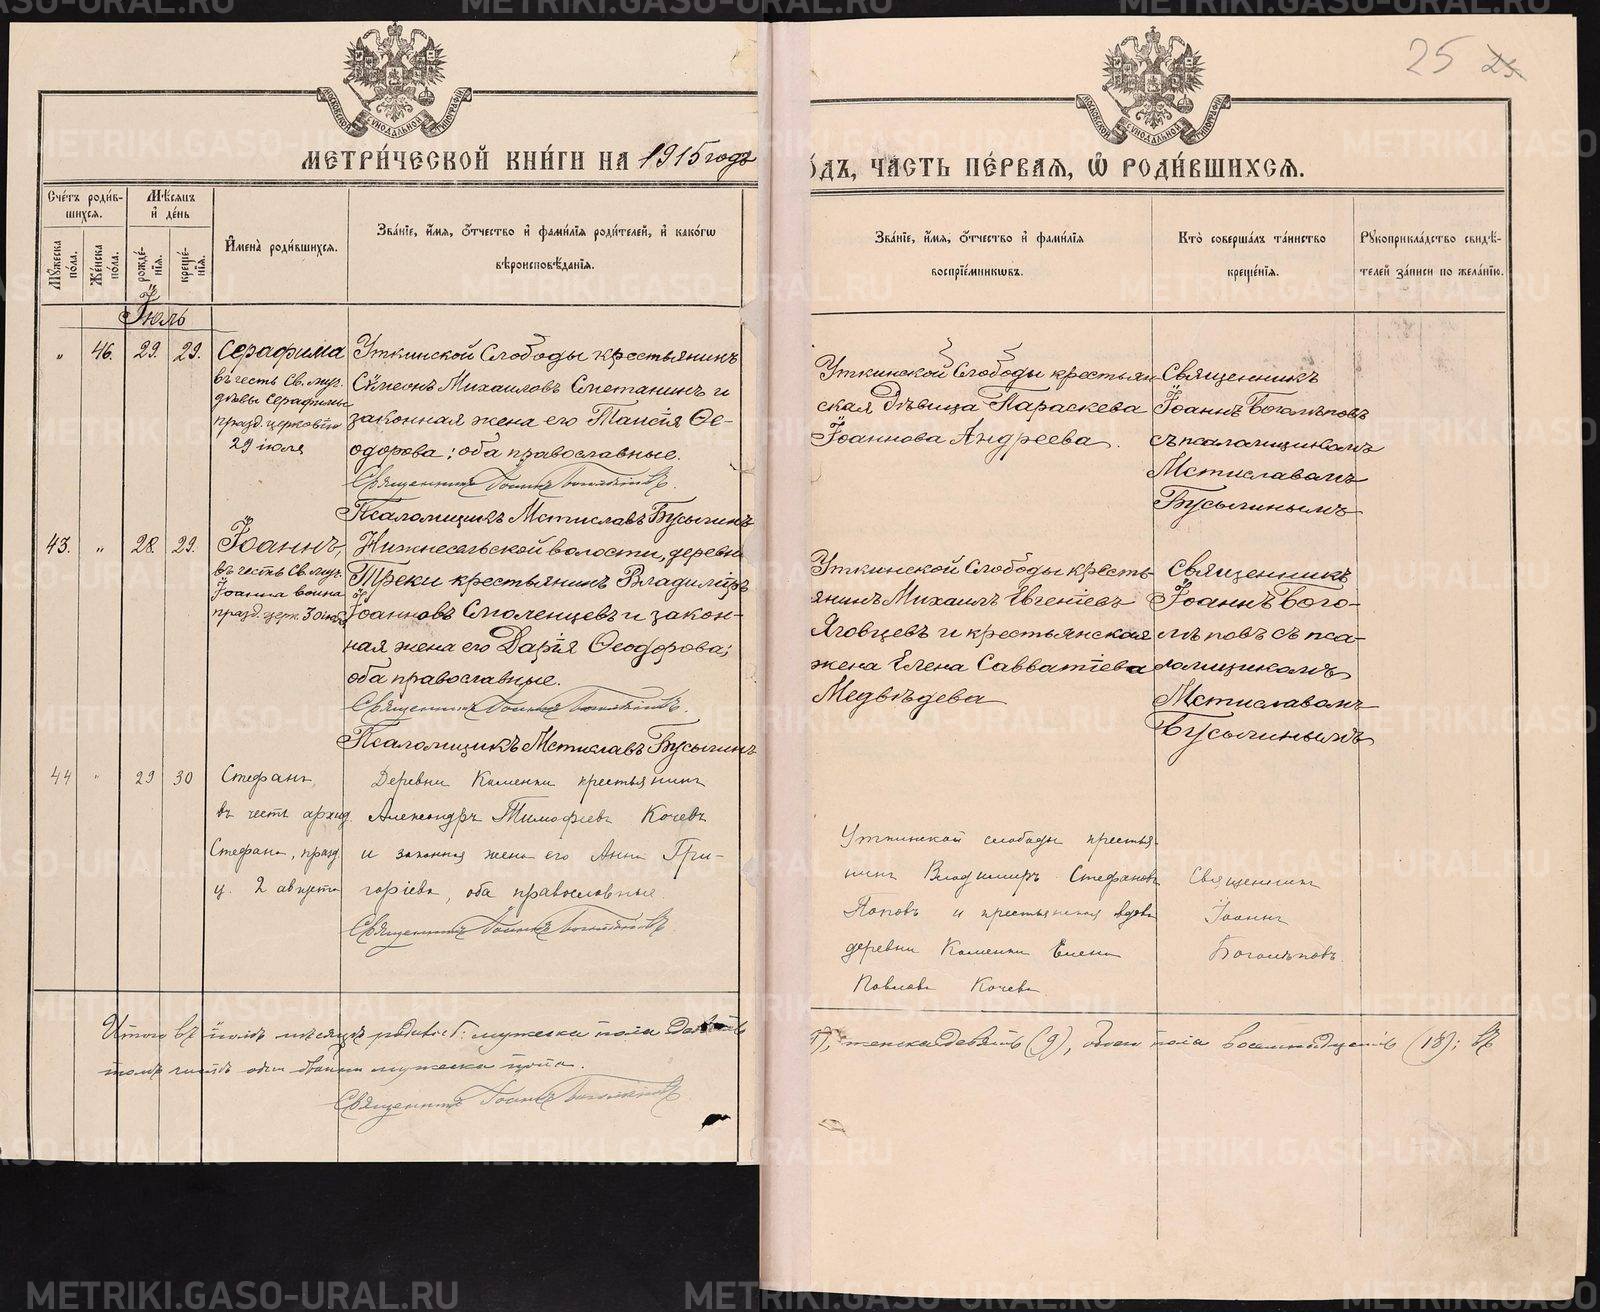 25 25
МОСКОВСКОЙ СѴНОДАЛЬНОЙ ТИПОГРАФІИ
МОСКОВСКОЙ СѴНОДАЛЬНОЙ ТИПОГРАФІИ
МЕТРИ́ЧЕСКОЙ КНИ́ГИ НА 1915 годъ
О́ДЪ, ЧА́СТЬ ПЕ́РВАЯ, Ѽ РОДИ́ВШИХСЯ.
Сче́тъ роди́в-
шихся.
Мѣ́сяцъ
и де́нь
Му́жеска по́ла.
Же́нска по́ла.
рожде́-нія.
креще́-нія.
Имена̀ роди́вшихся.
Зва́ніе, и́мя, о́тчество и фами́лія роди́телей, и како́гѡ
вѣроисповѣ́данія.
Зва́ніе, и́мя, о́тчество и фами́лія
воспріе́мникѡвъ.
Кто̀ соверша́лъ та́инство
креще́нія.
Рукоприкла́дство свидѣ́-
телей за́писи по жела́нію.
Іюль
„ 46. 29. 29.
Серафима
въ честь Св. муч.
дѣвы Серафимы
празд. церковію
29 іюля
Уткинской Слободы крестьянинъ
Сѵмеонъ Михаиловъ Сметанинъ и
законная жена его Таисія Ѳе-
одорова; оба православные.
Священникъ Іоаннъ Боголѣповъ.
Псаломщикъ Мстиславъ Бусыгинъ
Уткинской Слободы крестьян
ская Дѣвица Параскева
Іоаннова Андреева.
Священникъ
Іоаннъ Боголѣповъ
съ псаломщикомъ
Мстиславомъ
Бусыгинымъ
43. „ 28. 29.
Іоаннъ,
въ честь Св. муч.
Іоанна воина
празд. церк. 30 іюля
Нижнесельской волости, деревни
Треки крестьянинъ Владиміръ
Іоанновъ Смоленцевъ и закон-
ная жена его Дарія Ѳеодорова;
оба православные.
Священникъ Іоаннъ Боголѣповъ.
Псаломщикъ Мстиславъ Бусыгинъ
Уткинской Слободы кресть-
янинъ Михаилъ Евгеніевъ
Яговцевъ и крестьянская
жена Елена Савватіева
Медвѣдева
Священникъ
Іоаннъ Бого-
лѣповъ съ пса-
ломщикомъ
Мстиславомъ
Бусыгинымъ
44 „ 29 30
Стефанъ,
въ честь архид.
Стефана, празд.
ц. 2 августа
Деревни Каменки крестьянинъ
Александръ Тимофеевъ Кочевъ
и законная жена его Анна Гри-
горіева, оба православные
Священникъ Іоаннъ Боголѣповъ.
Уткинской слободы крестья-
нинъ Владимиръ Стефановъ
Поповъ и крестьянская вдова
деревни Каменки Елена
Павлова Кочева
Священникъ
Іоаннъ
Боголѣповъ.
Итого въ іюлѣ мѣсяцѣ родилось: мужеска пола девять
женска девять (9), обоего пола восемнадцать (18); въ
томъ числѣ одна двойня мужеска пола.
Священникъ Іоаннъ Боголѣповъ.
METRIKI.GASO-URAL.RU